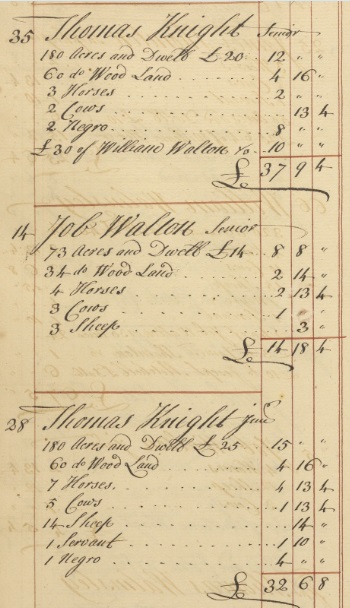 35 Thomas Knight Senior
180 Acres and Dwell £ 20 . . 12 " "
60 do Wood Land . . . . 4 16 "
3 Horses . . . . 2 " "
2 Cows . . . . 13 4
2 Negro . . . . 8 " "
£30 of William Walton . . 10 " "
£ 37 9 4
14 Job Walton Senior
73 Acres and Dwell £14 . . 8 8 "
34 do Wood Land . . . . 2 14 "
4 Horses . . . . 2 13 4
3 Cows . . . . 1 " "
3 Sheep . . . . 3 "
£ 14 18 4
28 Thomas Knight junr
180 Acres and Dwell £ 25 . . 15 " "
60 do Wood Land . . . . 4 16 "
7 Horses . . . . 4 13 4
5 Cows . . . . 1 13 4
14 Sheep . . . . 14 "
1 Servant . . . . 1 10 "
1 Negro . . . . 4 " "
£ 32 6 8